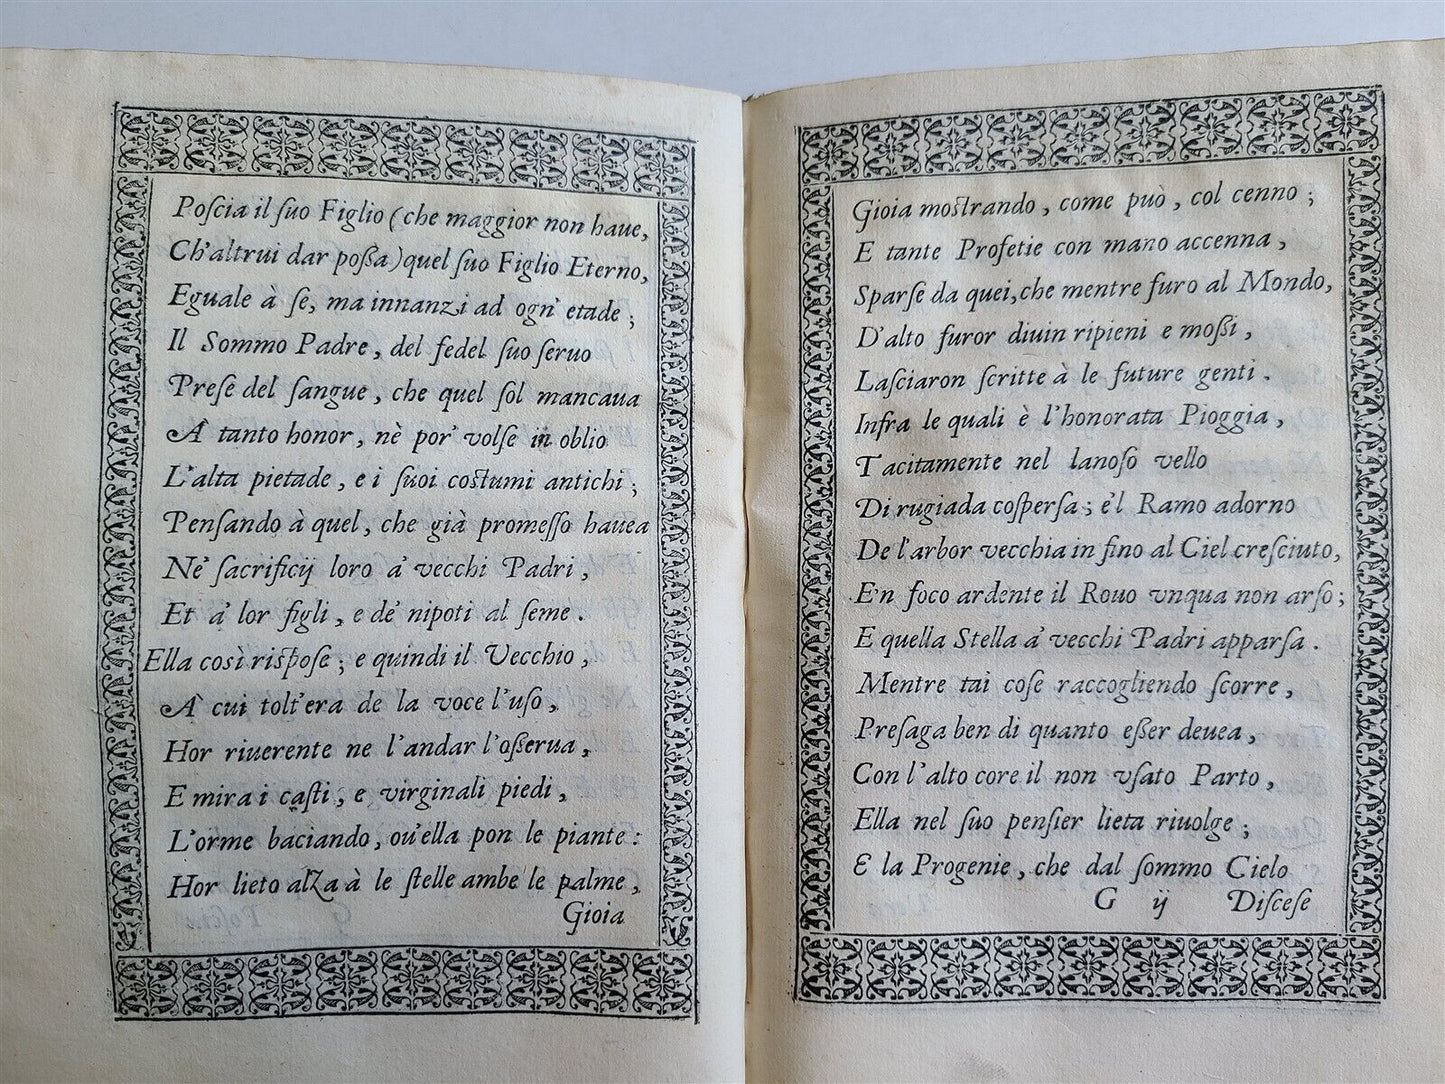 Poſcia il ſuo Figlio (che maggior non haue,
Ch'altrui dar poßa) quel ſuo Figlio Eterno,
Eguale à ſe, ma innanzi ad ogn' etade ;
Il Sommo Padre, del fedel ſuo ſeruo
Preſe del ſangue, che quel ſol mancaua
A tanto honor, nè por' volſe in oblio
L'alta pietade, e i ſuoi coſtumi antichi ;
Penſando à quel, che già promeſſo hauea
Ne' ſacrificij loro a' vecchi Padri,
Et a' lor figli, e de' nipoti al ſeme.
Ella così riſpoſe ; e quindi il Vecchio,
A cui tolt'era de la voce l'uſo,
Hor riuerente ne l'andar l'oßerua,
E mira i caſti, e virginali piedi,
L'orme baciando, ou'ella pon le piante :
Hor lieto alza à le ſtelle ambe le palme,
Gioia
Gioia moſtrando, come può, col cenno ;
E tante Profetie con mano accenna,
Sparſe da quei, che mentre furo al Mondo,
D'alto furor diuin ripieni e moßi,
Laſciaron ſcritte à le future genti.
Infra le quali è l'honorata Pioggia,
Tacitamente nel lanoſo vello
Di rugiada coſperſa ; e'l Ramo adorno
De l'arbor vecchia in fino al Ciel creſciuto,
E'n foco ardente il Rouo vnqua non arſo ;
E quella Stella a' vecchi Padri apparſa.
Mentre tai coſe raccogliendo ſcorre,
Preſaga ben di quanto eßer deuea,
Con l'alto core il non vſato Parto,
Ella nel ſuo penſier lieta riuolge ;
E la Progenie, che dal ſommo Cielo
G ij Diſceſe